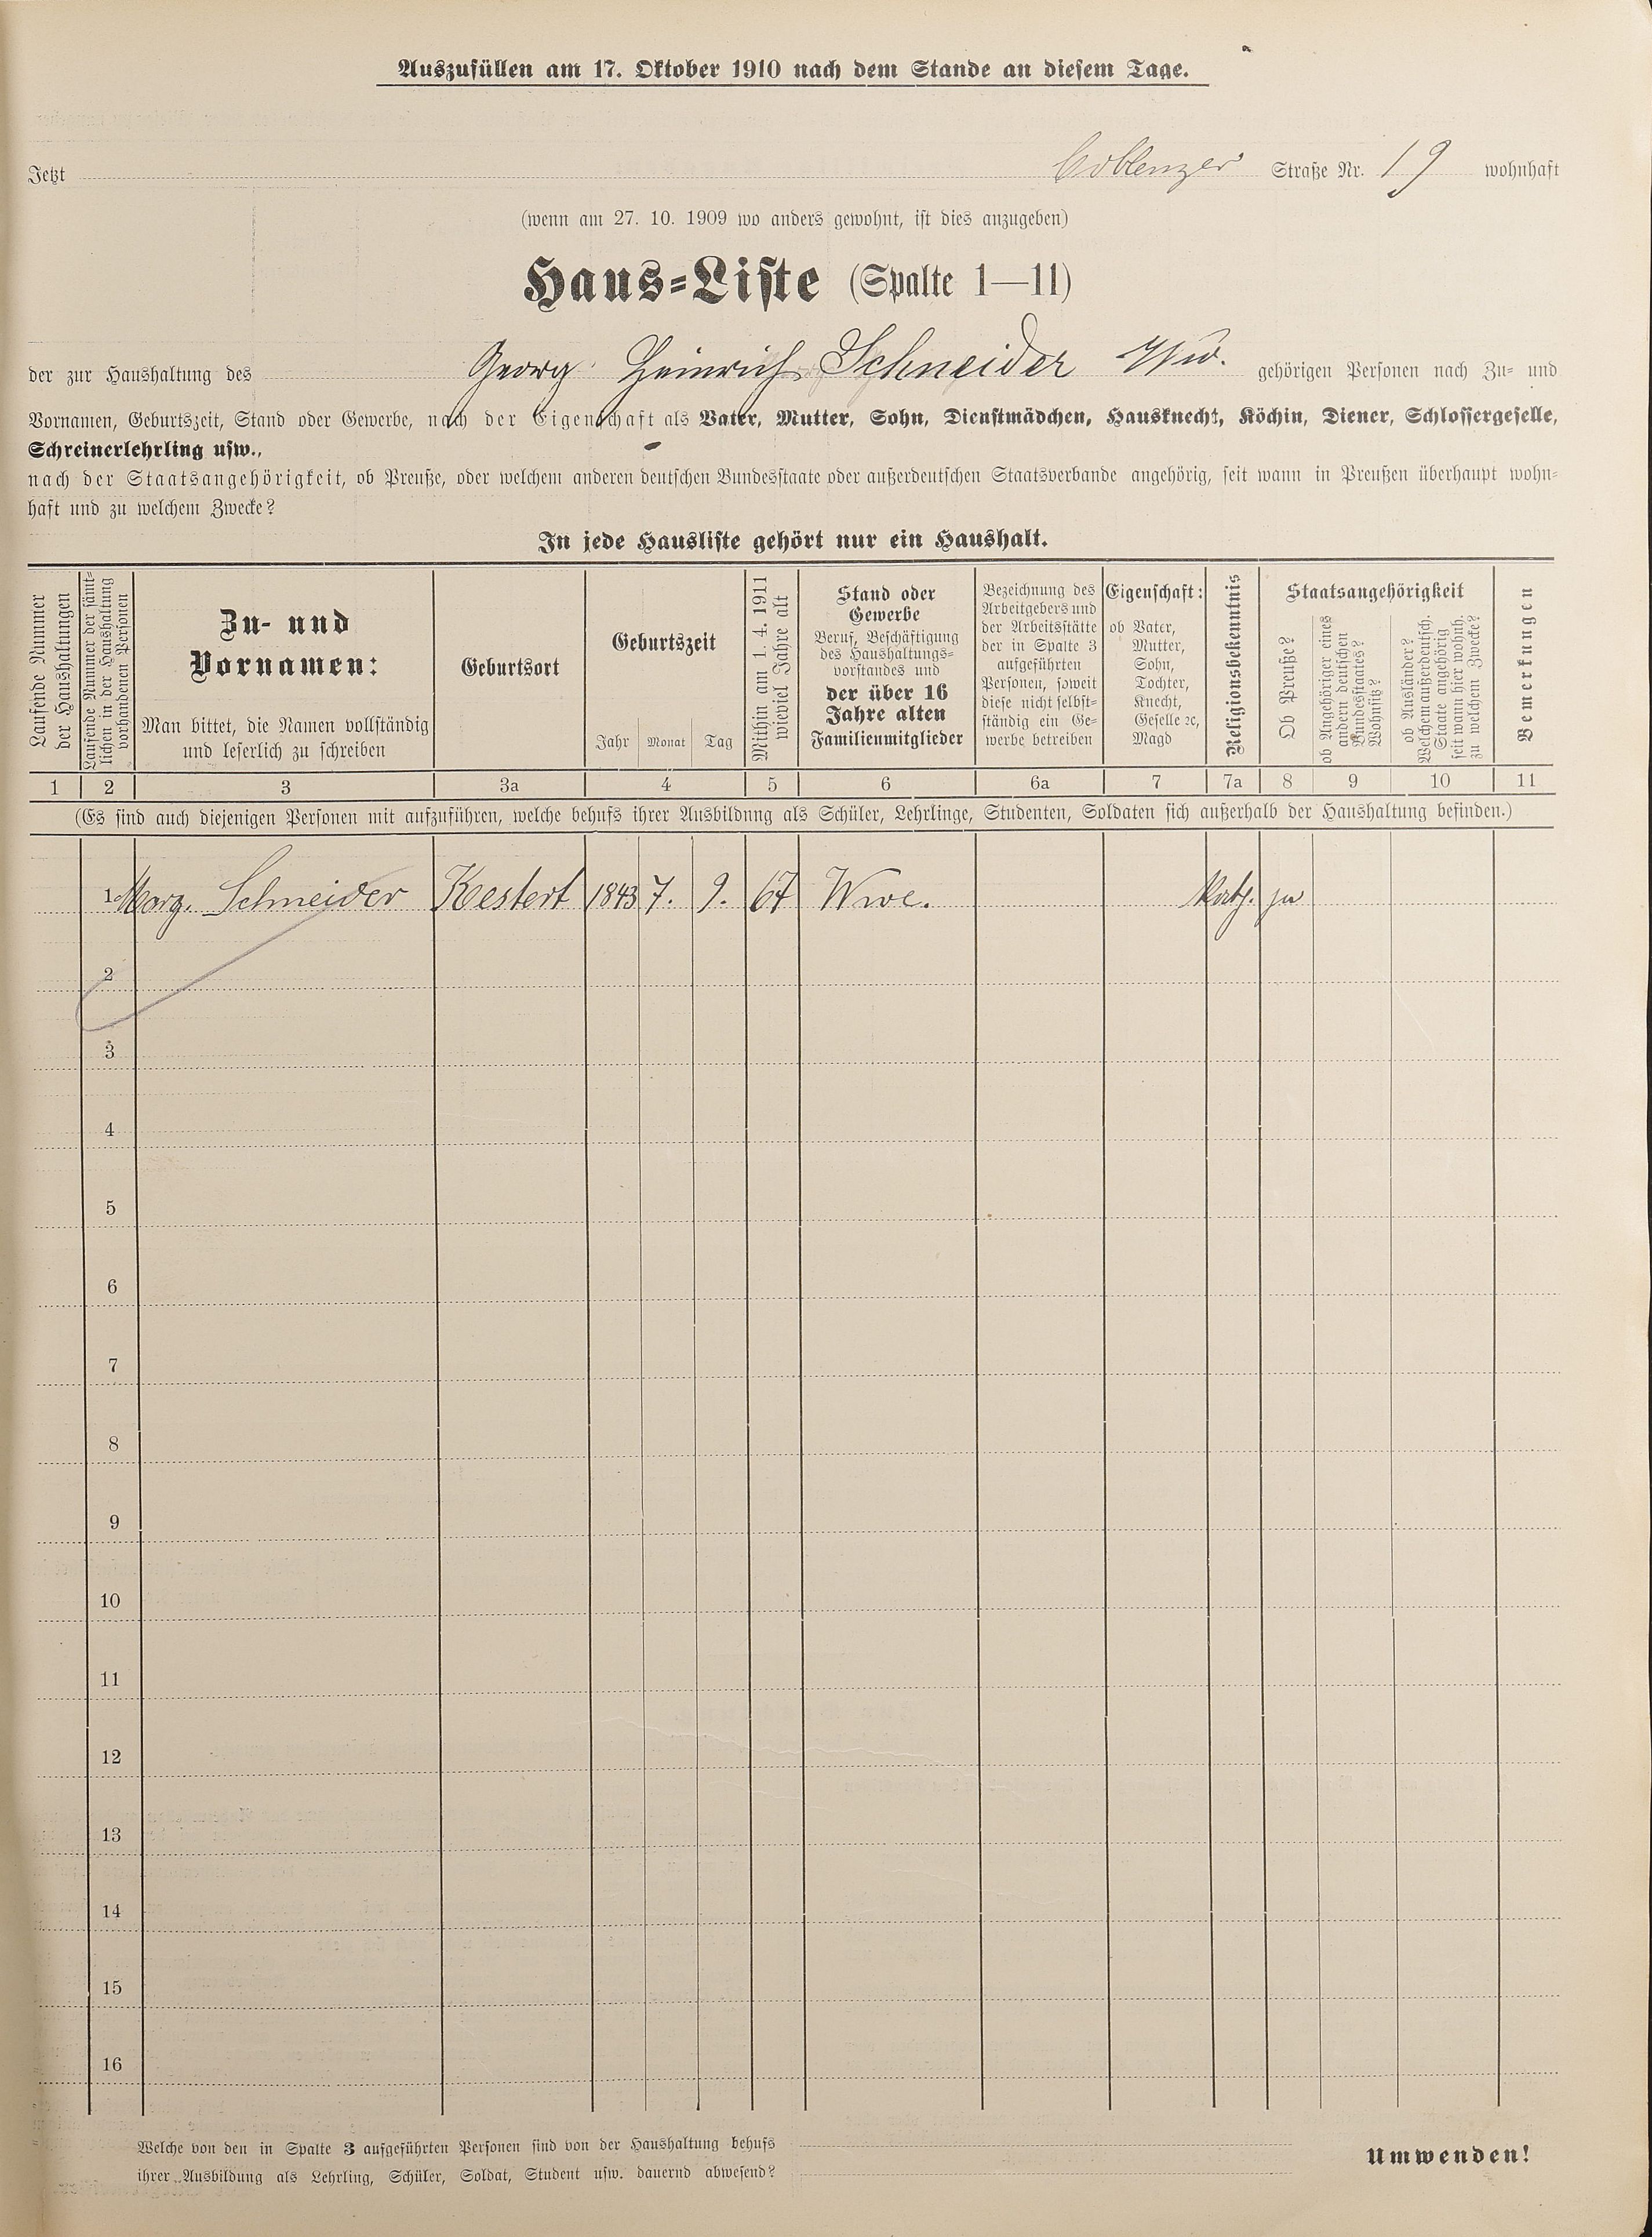 Auszufüllen am 17. Oktober 1910 nach dem Stande an diesem Tage.
Jetzt Coblenzer Straße Nr. 19 wohnhaft
(wenn am 27. 10. 1909 wo anders gewohnt, ist dies anzugeben)
Haus-Liste (Spalte 1—11)
der zur Haushaltung des Georg Heinrich Schneider Ww. gehörigen Personen nach Zu- und
Vornamen, Geburtszeit, Stand oder Gewerbe, nach der Eigenschaft als Vater, Mutter, Sohn, Dienstmädchen, Hausknecht, Köchin, Diener, Schlossergeselle,
Schreinerlehrling usw.,
nach der Staatsangehörigkeit, ob Preuße, oder welchem anderen deutschen Bundesstaate oder außerdeutschen Staatsverbande angehörig, seit wann in Preußen überhaupt wohn-
haft und zu welchem Zwecke?
In jede Hausliste gehört nur ein Haushalt.
Laufende Nummer
der Haushaltungen
Laufende Nummer der sämt-
lichen in der Haushaltung
vorhandenen Personen
Zu- und
Vornamen:
Man bittet, die Namen vollständig
und leserlich zu schreiben
Geburtsort
Geburtszeit
Jahr Monat Tag
Mithin am 1. 4. 1911
wieviel Jahre alt
Stand oder
Gewerbe
Beruf, Beschäftigung
des Haushaltungs-
vorstandes und
der über 16
Jahre alten
Familienmitglieder
Bezeichnung des
Arbeitgebers und
der Arbeitsstätte
der in Spalte 3
aufgeführten
Personen, soweit
diese nicht selbst-
ständig ein Ge-
werbe betreiben
Eigenschaft:
ob Vater,
Mutter,
Sohn,
Tochter,
Knecht,
Geselle ꝛc,
Magd
Religionsbekenntnis
Staatsangehörigkeit
Ob Preuße?
ob Angehöriger eines
andern deutschen
Bundesstaates?
Wohnsitz?
ob Ausländer?
Welchem außerdeutsch.
Staate angehörig
seit wann hier wohnh.
zu welchem Zwecke?
Bemerkungen
1 2 3 3a 4 5 6 6a 7 7a 8 9 10 11
(Es sind auch diejenigen Personen mit aufzuführen, welche behufs ihrer Ausbildung als Schüler, Lehrlinge, Studenten, Soldaten sich außerhalb der Haushaltung befinden.)
1 Marg. Schneider Kestert 1843 7. 9. 67 Wwe. Kath. ja
2
3
4
5
6
7
8
9
10
11
12
13
14
15
16
Welche von den in Spalte 3 aufgeführten Personen sind von der Haushaltung behufs
ihrer Ausbildung als Lehrling, Schüler, Soldat, Student usw. dauernd abwesend?
Umwenden!